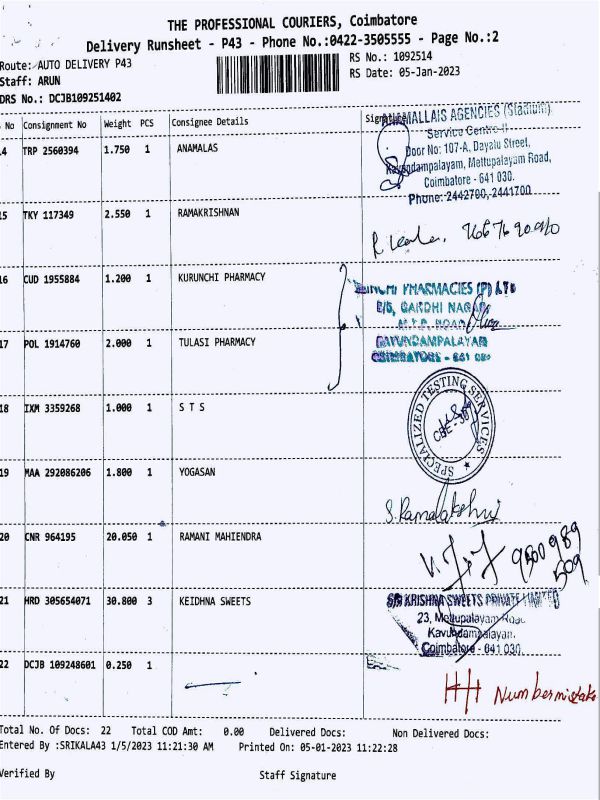 THE PROFESSIONAL COURIERS, Coimbatore
Delivery Runsheet - P43 - Phone No.:0422-3505555 - Page No.:2
Route: AUTO DELIVERY P43
RS No.: 1092514
Staff: ARUN
RS Date: 05-Jan-2023
DRS No.: DCJB109251402
No Consignment No Weight PCS Consignee Details Signature
14 TRP 2560394 1.750 1 ANAMALAS
MALLAIS AGENCIES (Stadium)
Service Centre-II
Door No: 107-A, Dayalu Street,
Kavundampalayam, Mettupalayam Road,
Coimbatore - 641 030.
Phone: 2442700, 2441700
15 TKY 117349 2.550 1 RAMAKRISHNAN
16 CUD 1955884 1.200 1 KURUNCHI PHARMACY
PHARMACIES (P) LTD
GANDHI NAGAR
M.T.P. ROAD
17 POL 1914760 2.000 1 TULASI PHARMACY
KAVUNDAMPALAYAM
COIMBATORE - 641 030
18 IXM 3359268 1.000 1 S T S
SPECIALIZED TESTING SERVICES
CBE-30
19 MAA 292086206 1.800 1 YOGASAN
S. Ramalakshmi
20 CNR 964195 20.050 1 RAMANI MAHIENDRA
9500989
509
21 HRD 305654071 30.800 3 KEIDHNA SWEETS
KRISHNA SWEETS PRIVATE LIMITED
23, Mettupalayam Road,
Kavundampalayam,
Coimbatore - 641 030.
22 DCJB 109248601 0.250 1
Number mistake
Total No. Of Docs: 22 Total COD Amt: 0.00 Delivered Docs: Non Delivered Docs:
Entered By :SRIKALA43 1/5/2023 11:21:30 AM Printed On: 05-01-2023 11:22:28
Verified By Staff Signature